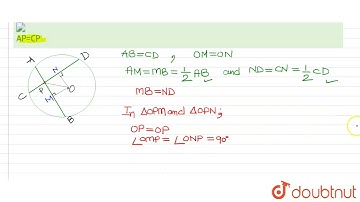 AP=CP
A
D
N
P
M
O
C
B
AB=CD , OM=ON
AM=MB=1/2 AB and ND=CN=1/2 CD
MB=ND
In △OPM and △OPN;
OP=OP
∠OMP=∠ONP=90°
doubtnut